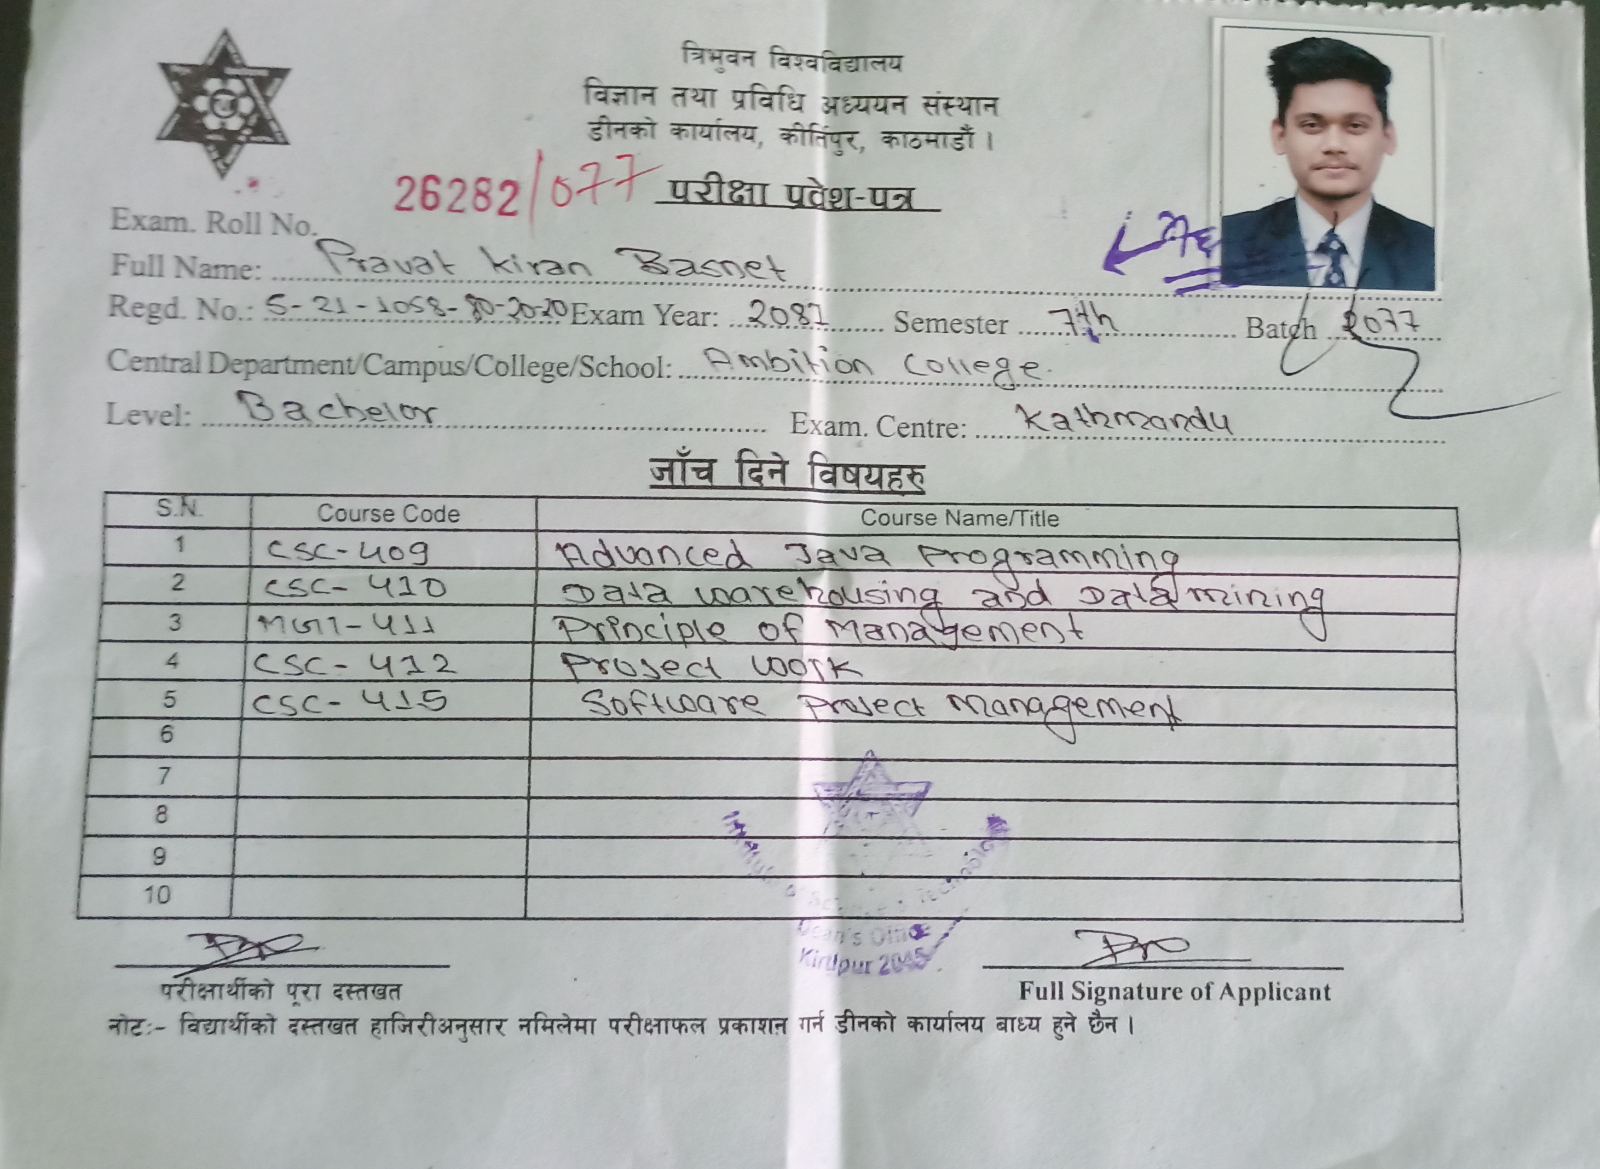 त्रिभुवन विश्वविद्यालय
विज्ञान तथा प्रविधि अध्ययन संस्थान
डीनको कार्यालय, कीर्तिपुर, काठमाडौं ।
26282/077 परीक्षा प्रवेश-पत्र
Exam. Roll No.
Full Name: Pravat Kiran Basnet
Regd. No.: 5-21-1058-80-2020 Exam Year: 2081 Semester 7th Batch 2077
Central Department/Campus/College/School: Ambition College.
Level: Bachelor Exam. Centre: Kathmandu
जाँच दिने विषयहरु
S.N. Course Code Course Name/Title
1 CSC-409 Advanced Java Programming
2 CSC-410 Data warehousing and Data mining
3 MGT-411 Principle of Management
4 CSC-412 Project work
5 CSC-415 Software Project Management
6
7
8
9
10
Institute of Science & Technology
Dean's Office
Kirtipur 2045
परीक्षार्थीको पूरा दस्तखत Full Signature of Applicant
नोटः- विद्यार्थीको दस्तखत हाजिरीअनुसार नमिलेमा परीक्षाफल प्रकाशन गर्न डीनको कार्यालय बाध्य हुने छैन ।